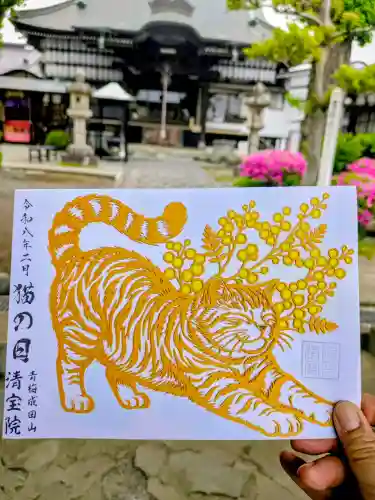 令和八年二月
猫の日
青梅成田山
清宝院